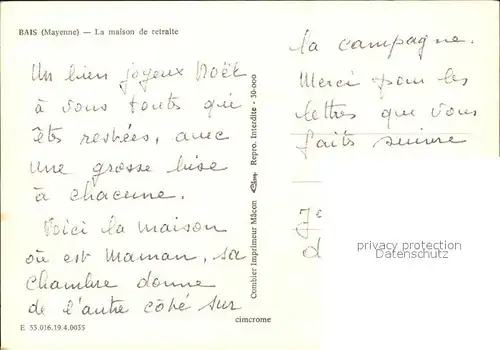 BAIS (Mayenne) — La maison de retraite
Un bien joyeux Noël
à vous toutes qui
êtes restées, avec
une grosse bise
à chacune.
Voici la maison
où est Maman, sa
chambre donne
de l'autre côté sur
E 53.016.19.4.0035
Combier Imprimeur Mâcon Repro. Interdite - 30-000
cimcrome
la campagne.
Merci pour les
lettres que vous
faits suivre
privacy protection
Datenschutz